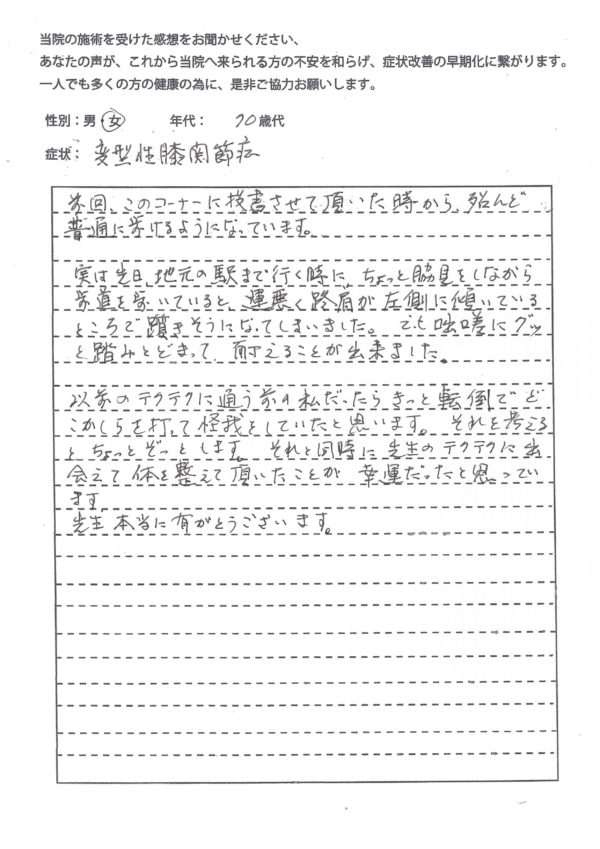 当院の施術を受けた感想をお聞かせください、
あなたの声が、これから当院へ来られる方の不安を和らげ、症状改善の早期化に繋がります。
一人でも多くの方の健康の為に、是非ご協力お願いします。
性別：男・女 年代： 70歳代
症状： 変型性膝関節症
前回、このコーナーに投書させて頂いた時から、殆んど
普通に歩けるようになっています。
実は先日、地元の駅まで行く時に、ちょっと脇見をしながら
歩道を歩いていると、運悪く路肩が左側に傾いている
ところで躓きそうになってしまいました。でも咄嗟にグッ
と踏みとどまって、耐えることが出来ました。
以前のテクテクに通う前の私だったらきっと転倒でど
こかしらを打って怪我をしていたと思います。それを考える
とちょっとぞっとします。それと同時に先生のテクテクに出
会えて体を整えて頂いたことが幸運だったと思ってい
ます。
先生本当に有がとうございます。